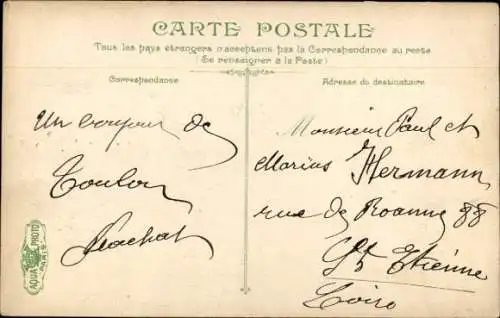 CARTE POSTALE
Tous les pays étrangers n'acceptent pas la Correspondance au recto
(Se renseigner à la Poste)
Correspondance
Adresse du destinataire
Un bonjour de
Toulon
Rochat
Monsieur Paul et
Marius Hermann
rue de Roanne 88
St Etienne
Loire
AQUA PHOTO
PARIS